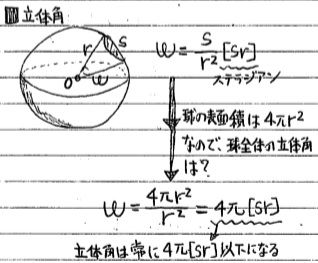 立体角
r S
O ω
ω = S/r² [sr]
ステラジアン
球の表面積は4πr²
なので、球全体の立体角
は?
ω = 4πr²/r² = 4π[sr]
立体角は常に4π[sr]以下になる